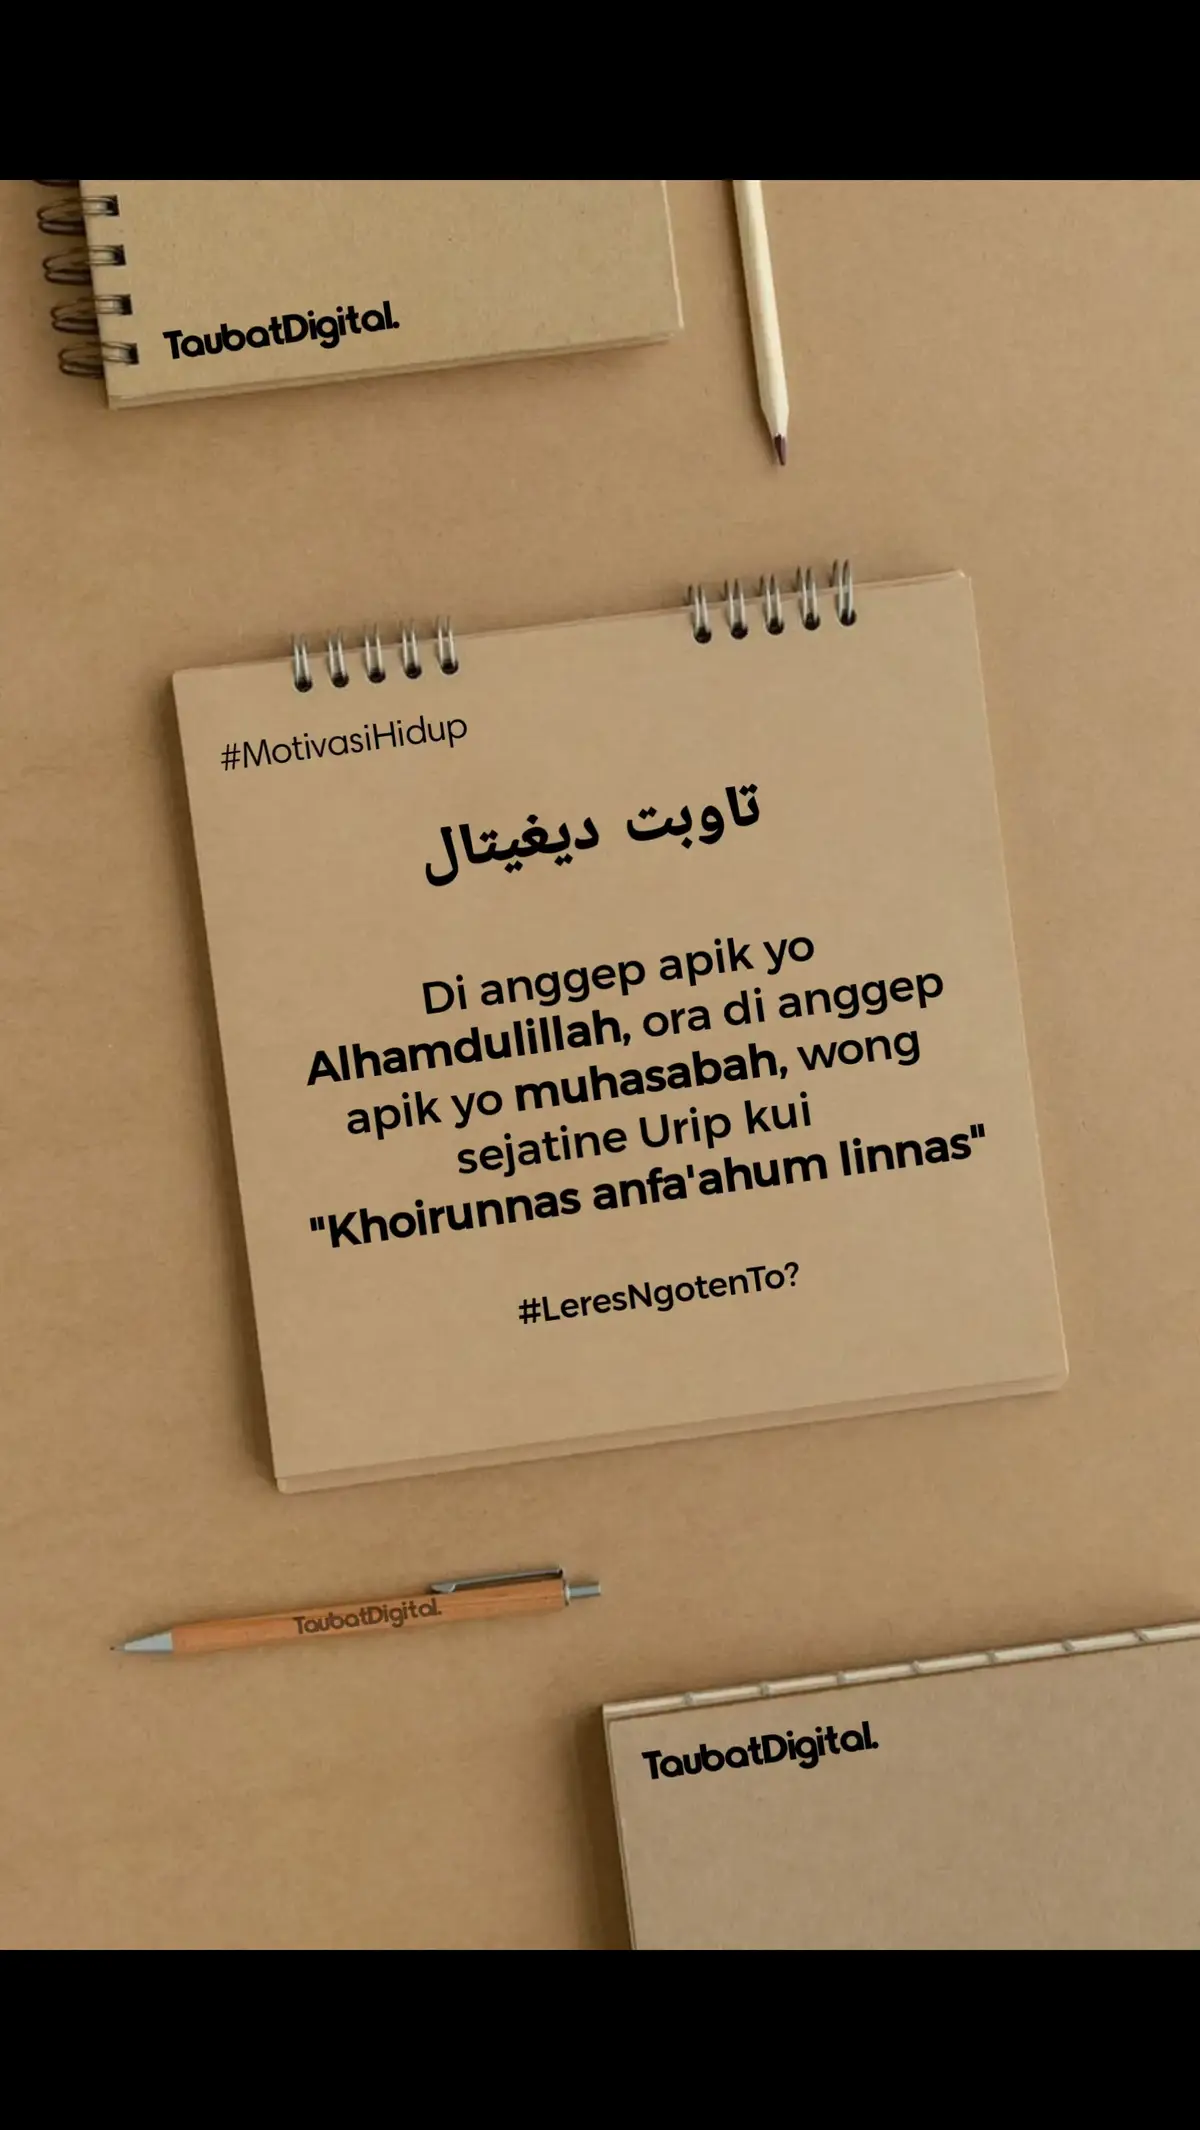 TaubatDigital.
#MotivasiHidup
تاوبت ديغيتال
Di anggep apik yo
Alhamdulillah, ora di anggep
apik yo muhasabah, wong
sejatine Urip kui
"Khoirunnas anfa'ahum linnas"
#LeresNgotenTo?
TaubatDigital.
TaubatDigital.